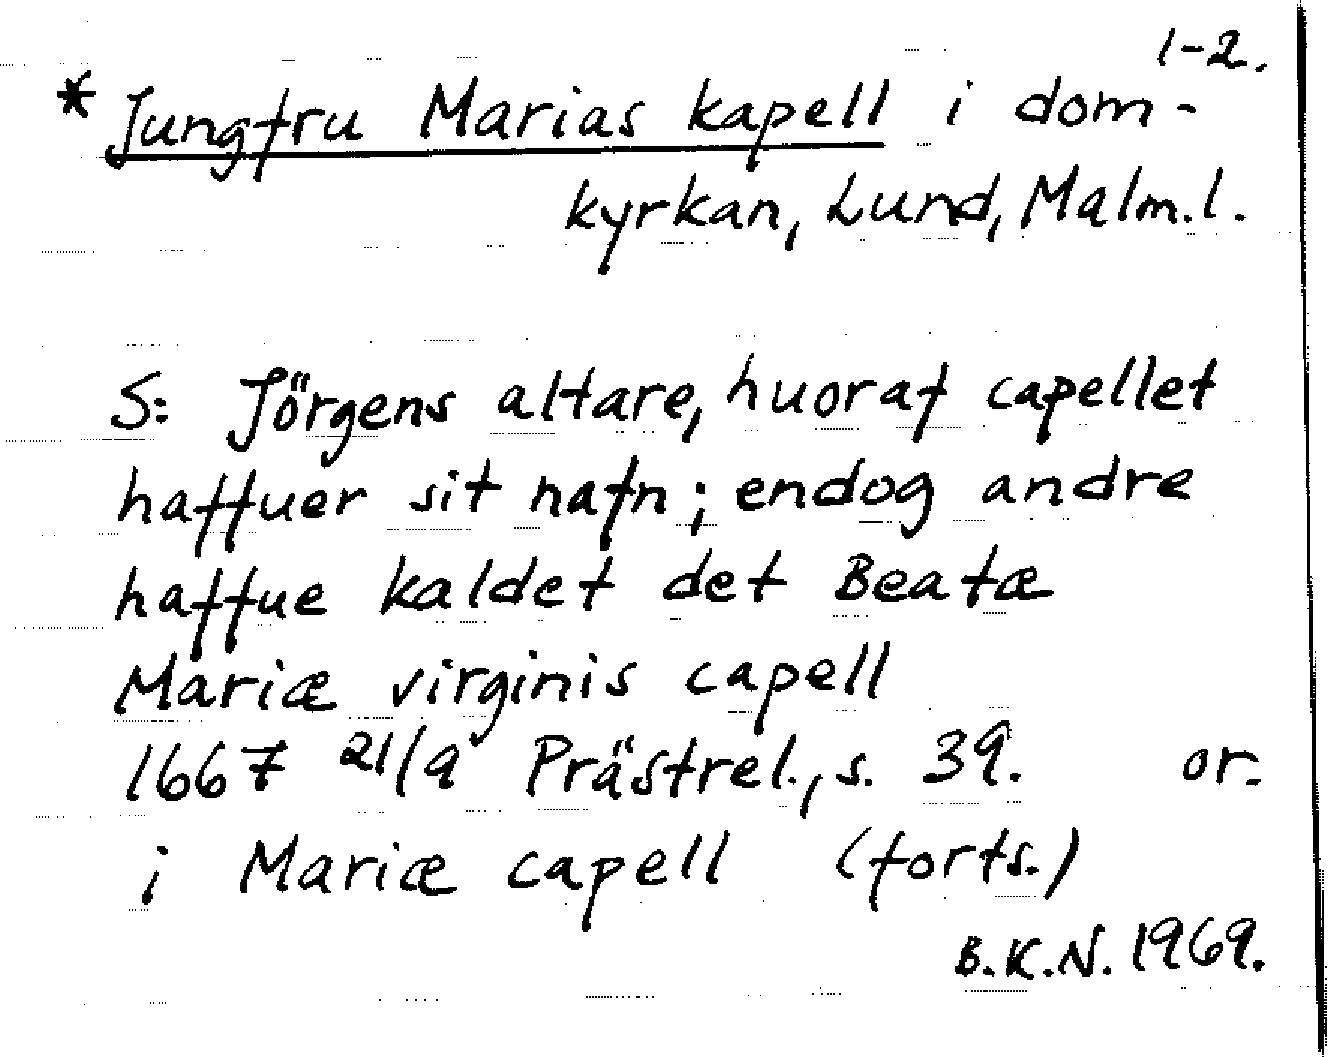 1-2.
* Jungfru Marias kapell i dom-
kyrkan, Lund, Malm.l.
S: Jörgens altare, huoraf capellet
haffuer sit nafn; endog andre
haffue kaldet det Beatæ
Mariæ virginis capell
1667 21/9 Prästrel., s. 39. or.
i Mariæ capell (forts.)
B.K.N. 1969.